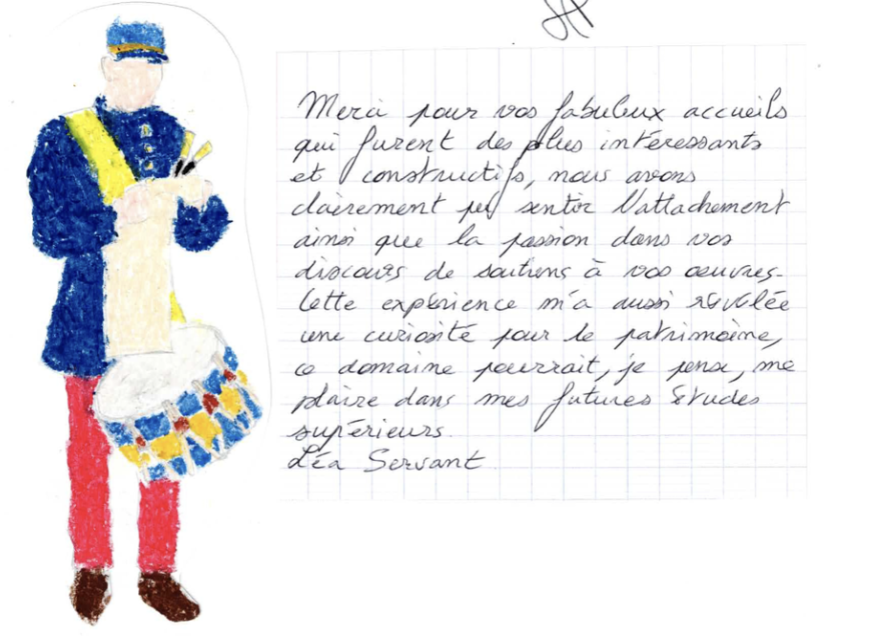 Merci pour vos fabuleux accueils
qui furent des plus intéressants
et constructifs, nous avons
clairement pu sentir l'attachement
ainsi que la passion dans vos
discours de soutiens à vos œuvres.
Cette expérience m'a aussi révélée
une curiosité pour le patrimoine,
ce domaine pourrait, je pense, me
plaire dans mes futures études
supérieurs.
Léa Servant